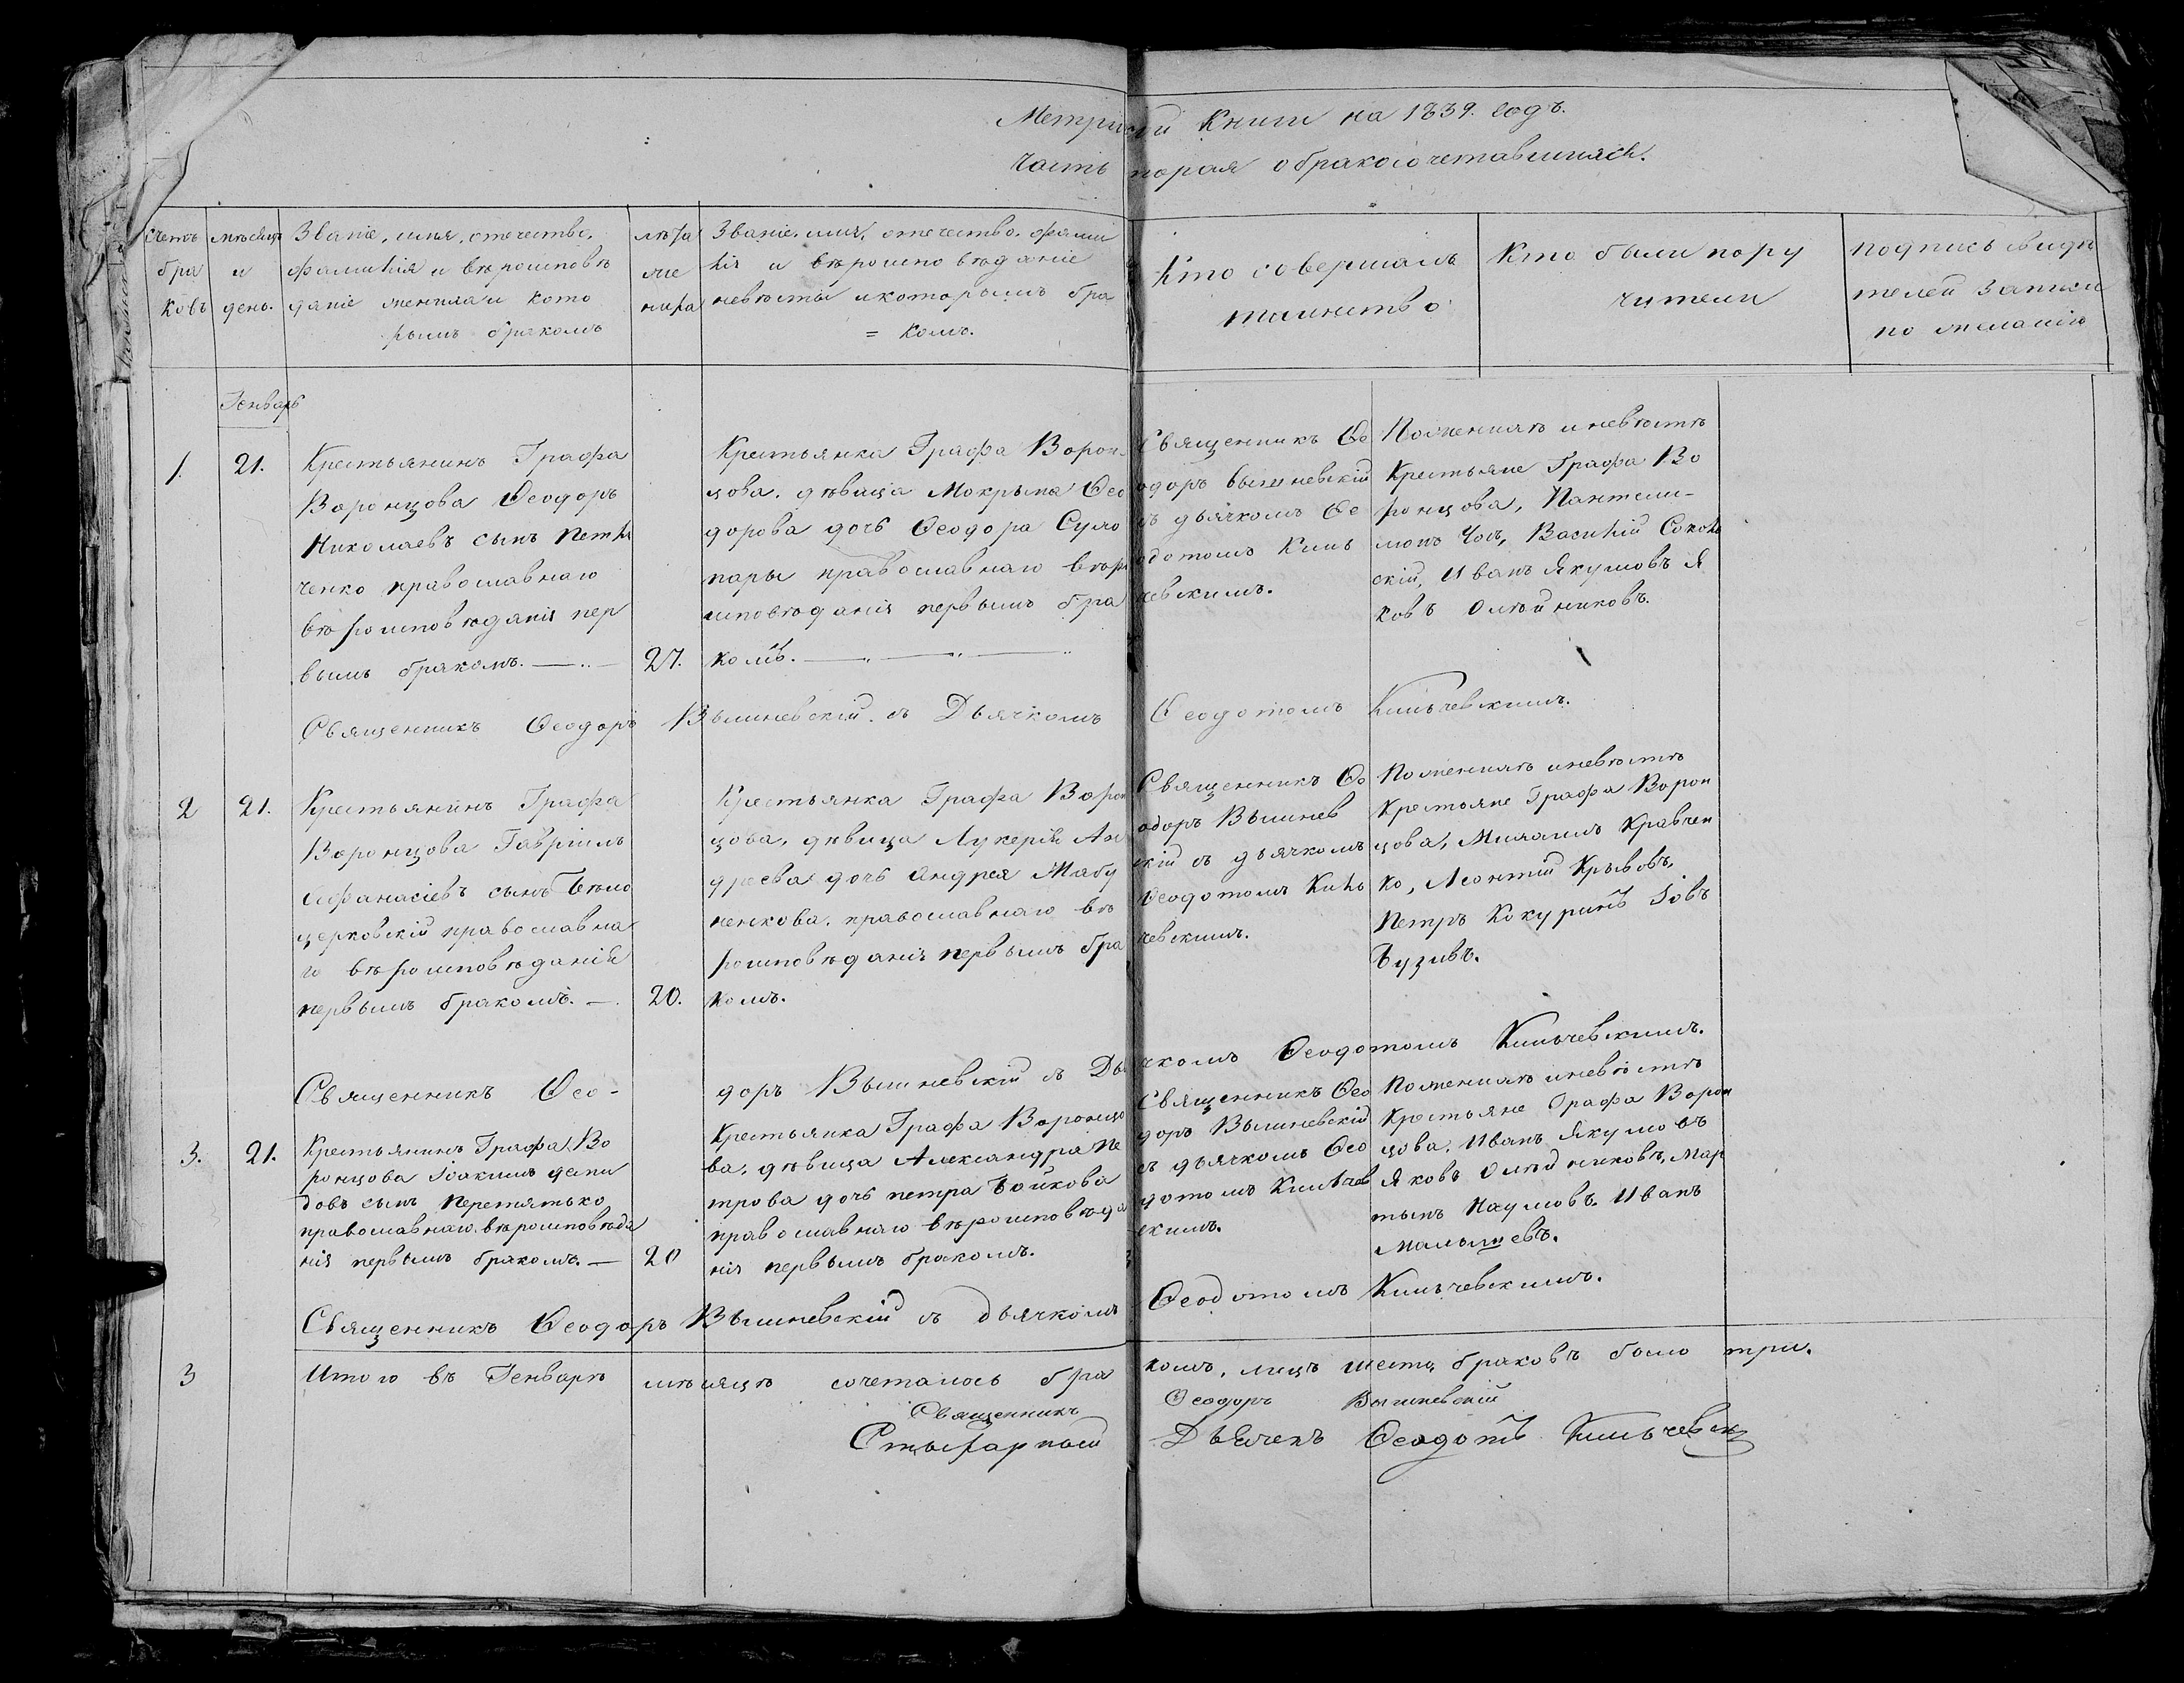 Метри кой Книги на 1839. годъ.
Часть торая о бракосочетавшихся.
Счетъ браковъ
мѣсяцъ и день.
Званіе, имя, отечество,
фамилія и вѣроисповѣ
даніе жениха и кото
рымъ бракомъ
лѣта
же
ниха
Званіе. имя, отечество. фами
лія и вѣроисповѣданіе
невѣсты и которымъ бра
= комъ.
Кто совершалъ
таинство
Кто были пору
чители
подпись свидѣ
телей записи
по желанію
Генварь
1. 21.
Крестьянинъ Графа
Воронцова Ѳеодоръ
Николаевъ сынъ Петли
ченко православнаго
вѣроисповѣданія пер
вымъ бракомъ. — 27.
Крестьянка Графа Ворон-
цова. дѣвица Мокрына Ѳео
дорова дочь Ѳеодора Сумо
пары православнаго вѣр
исповѣданія первымъ бра
комъ.
Священникъ Ѳе
одоръ Вышневскій
съ дьячкомъ Ѳе
одотомъ Киль
чевскимъ.
По женихѣ и невѣстѣ
Крестьяне Графа Во
ронцова, Пантели-
монъ Чоъ, Василій Соколь
скій, Иванъ Якумовъ Я
ковъ Олѣйниковъ.
Священникъ Ѳеодоръ Вышневскій. съ Дьячкомъ Ѳеодотомъ Кильчевскимъ.
2 21.
Крестьянинъ Графа
Воронцова Гавріилъ
Афанасіевъ сынъ Бѣло
церковскій православна
го вѣроисповѣданія
первымъ бракомъ. — 20.
Крестьянка Графа Ворон
цова, дѣвица Лукерія Ан
дреева дочь Андрея Жабу
ненкова. православнаго вѣ
роисповѣданія первымъ бра
комъ.
Священникъ Ѳе
одоръ Вышнев
скій съ дьячкомъ
Ѳеодотомъ Киль
чевскимъ.
По женихѣ и невѣстѣ
Крестьяне Графа Ворон
цова, Михаилъ Кравчен
ко, Леонтій Крывовъ,
Петръ Кокуринъ Іовъ
Бузивъ.
Священникъ Ѳео- доръ Вышневскій съ Дья чкомъ Ѳеодотомъ Кильчевскимъ.
3. 21.
Крестьянинъ Графа Во
ронцова Іоакимъ деми
довъ сынъ Перетятько
православнаго. вѣроисповѣда
нія первымъ бракомъ. — 20
Крестьянка Графа Воронцо
ва, дѣвица Александра Пе
трова дочь петра Бойкова
православнаго вѣроисповѣда
нія первымъ бракомъ.
Священникъ Ѳео
доръ Вышневскій
съ дьячкомъ Ѳео
дотомъ Кильчев
скимъ.
По женихѣ и невѣстѣ
Крестьяне Графа Ворон
цова. Иванъ Якумовъ
Яковъ Олѣйниковъ, Мар
тынъ Наумовъ. Иванъ
Малышевъ.
Священникъ Ѳеодоръ Вышневскій съ дьячкомъ Ѳеодотомъ Кильчевскимъ.
3 Итого въ Генварѣ мѣсяцѣ сочеталось бра комъ, лицъ шесть, браковъ было три.
Священникъ Ѳеодоръ Вышневскій
Дьячекъ Ѳеодотъ Кильчевскій